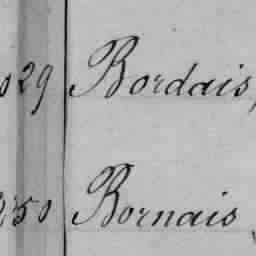 29 Bordais,
50 Bornais